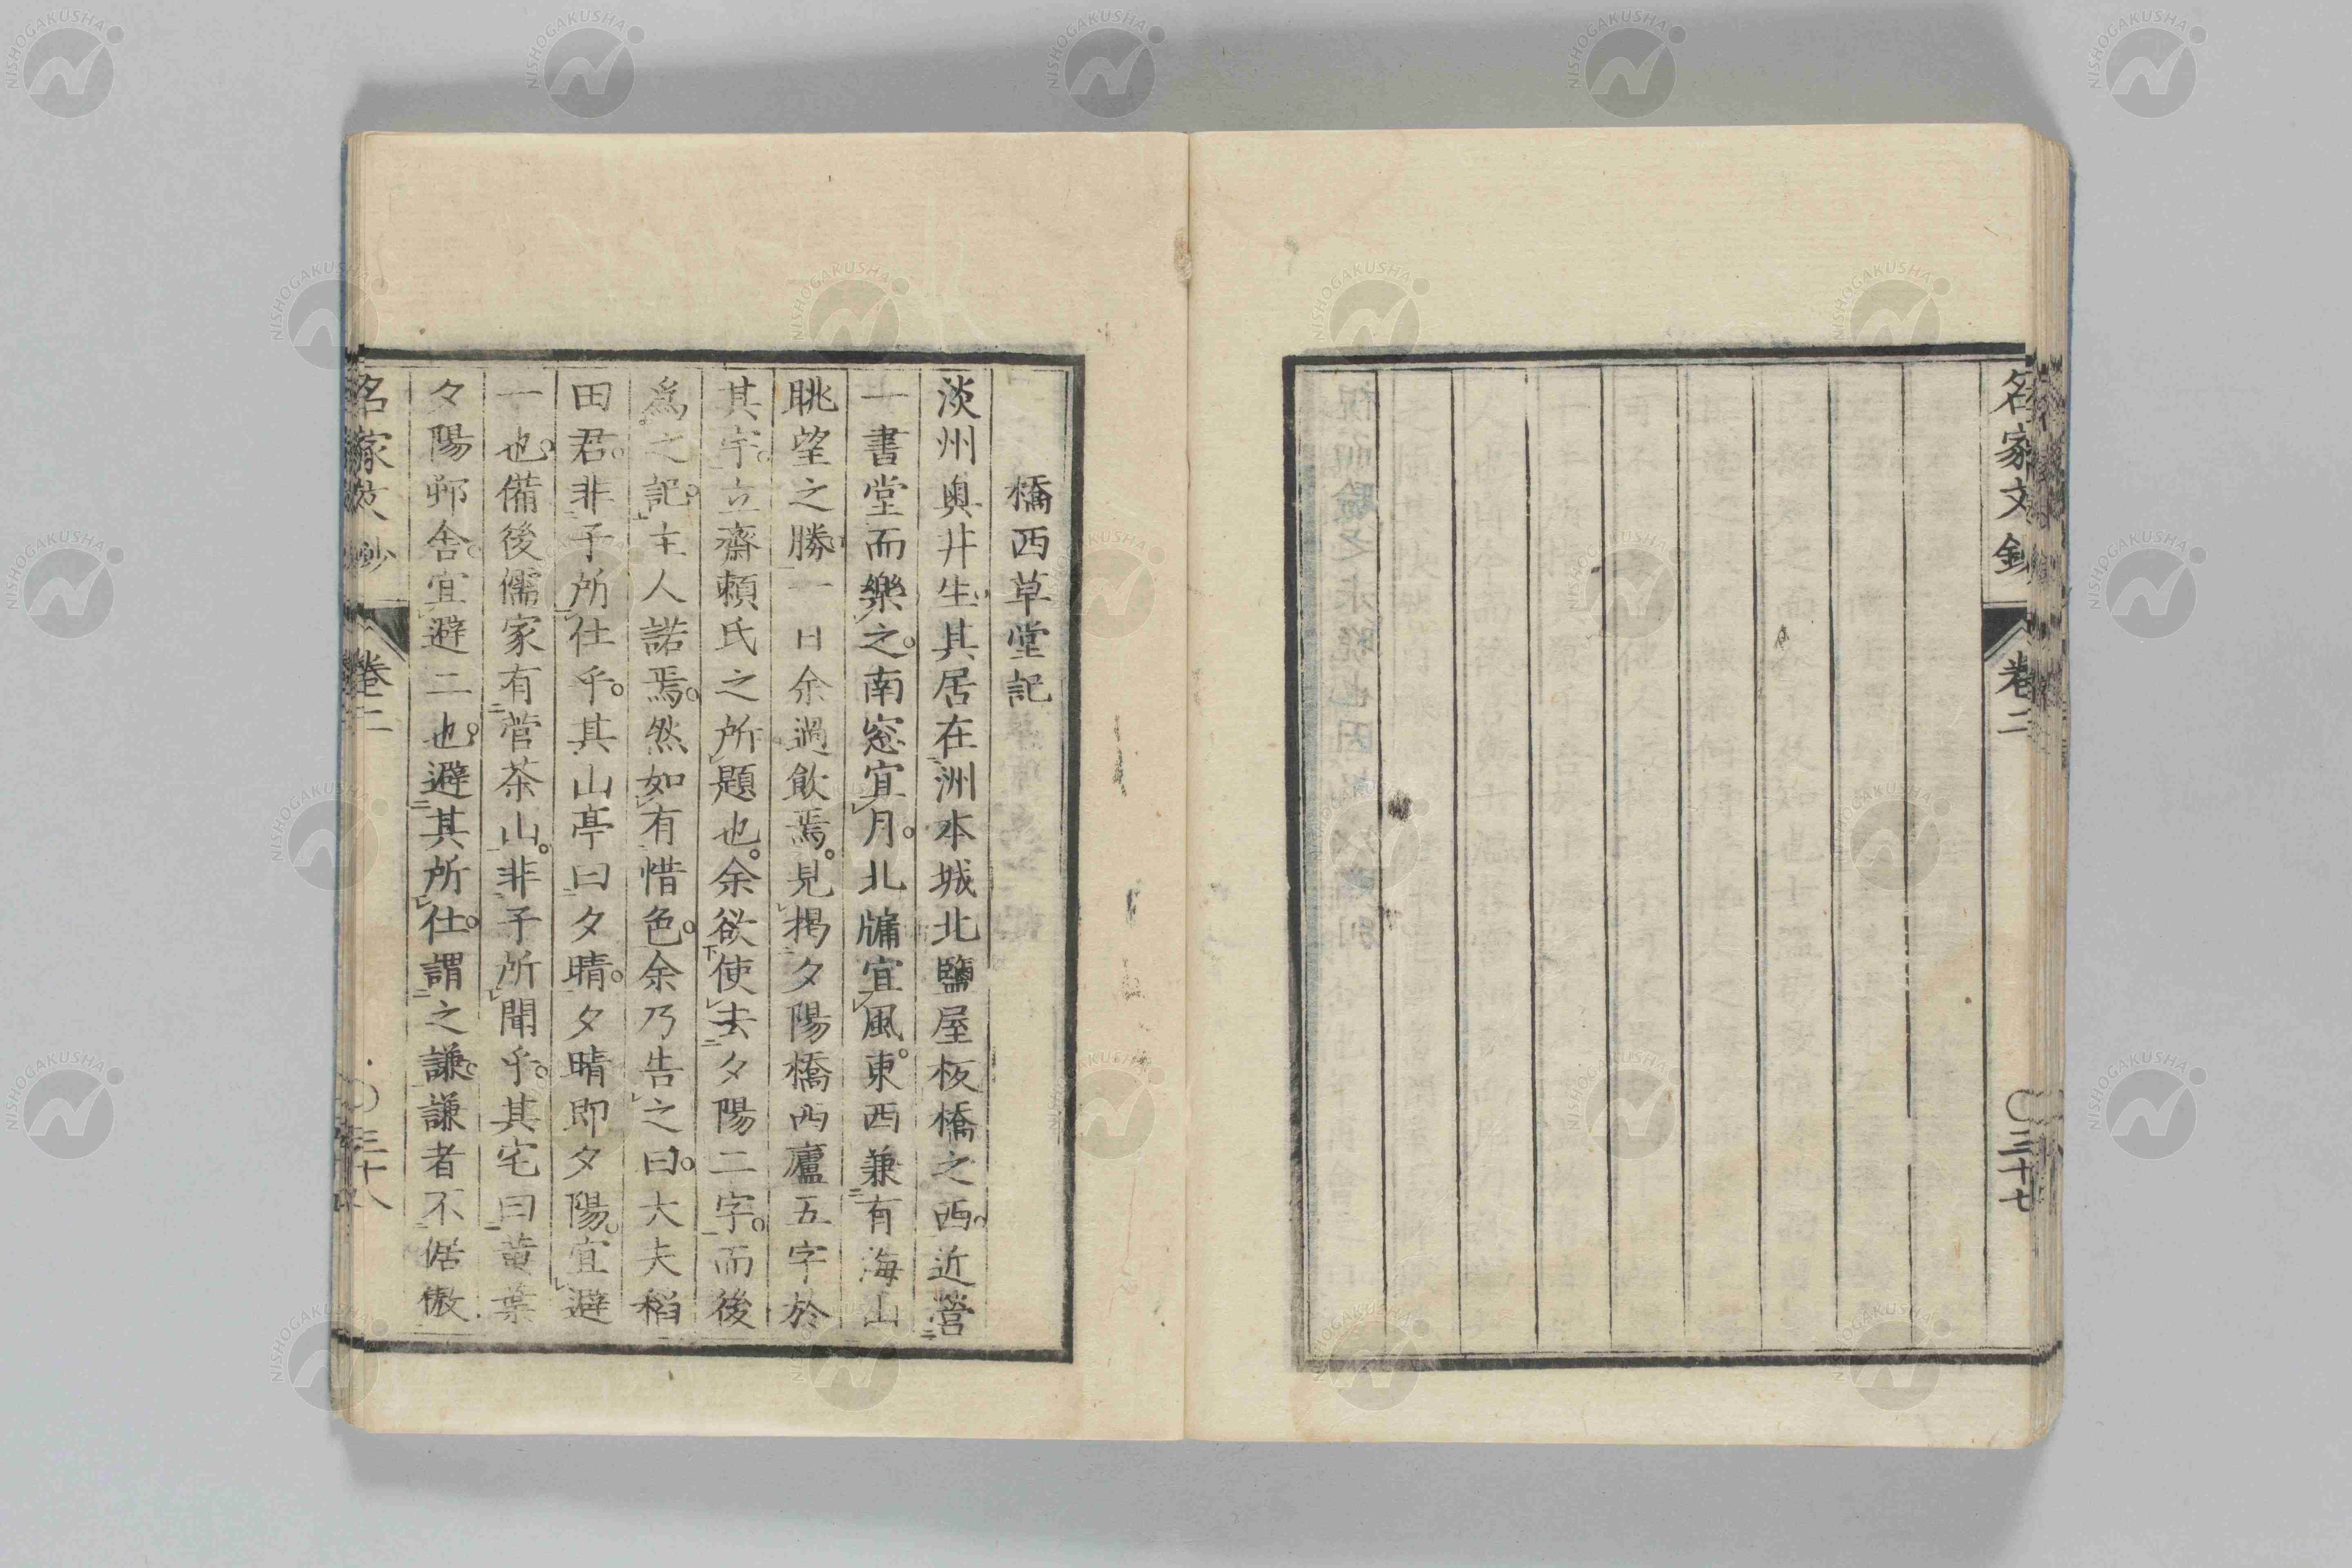 名家文鈔
卷二
〇三十七
橋西草堂記
淡州奥井生其居在洲本城北鹽屋板橋之西近營
一書堂而樂之南窓宜月北牖宜風東西兼有海山
眺望之勝一日余過飲焉見掲夕陽橋西廬五字於
其宇立齋頼氏之所題也余欲使去夕陽二字而後
爲之記主人諾焉然如有惜色余乃告之曰大夫稻
田君非子所仕乎其山亭曰夕晴夕晴即夕陽宜避
一也備後儒家有菅茶山非子所聞乎其宅曰黄葉
夕陽邨舍宜避二也避其所仕謂之謙謙者不倨傲
名家文鈔
卷二
〇三十八
NISHOGAKUSHA